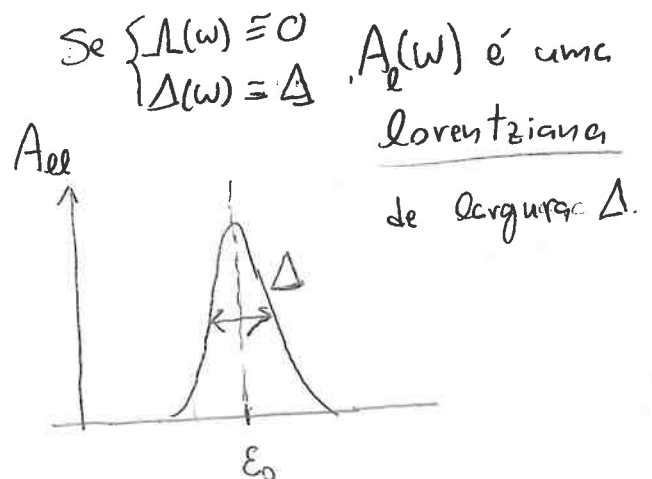 Se { Λ(ω) ≡ 0
Δ(ω) ≡ Δ , A_l(ω) é uma
lorentziana
de largura Δ.
A_ll
Δ
ε₀